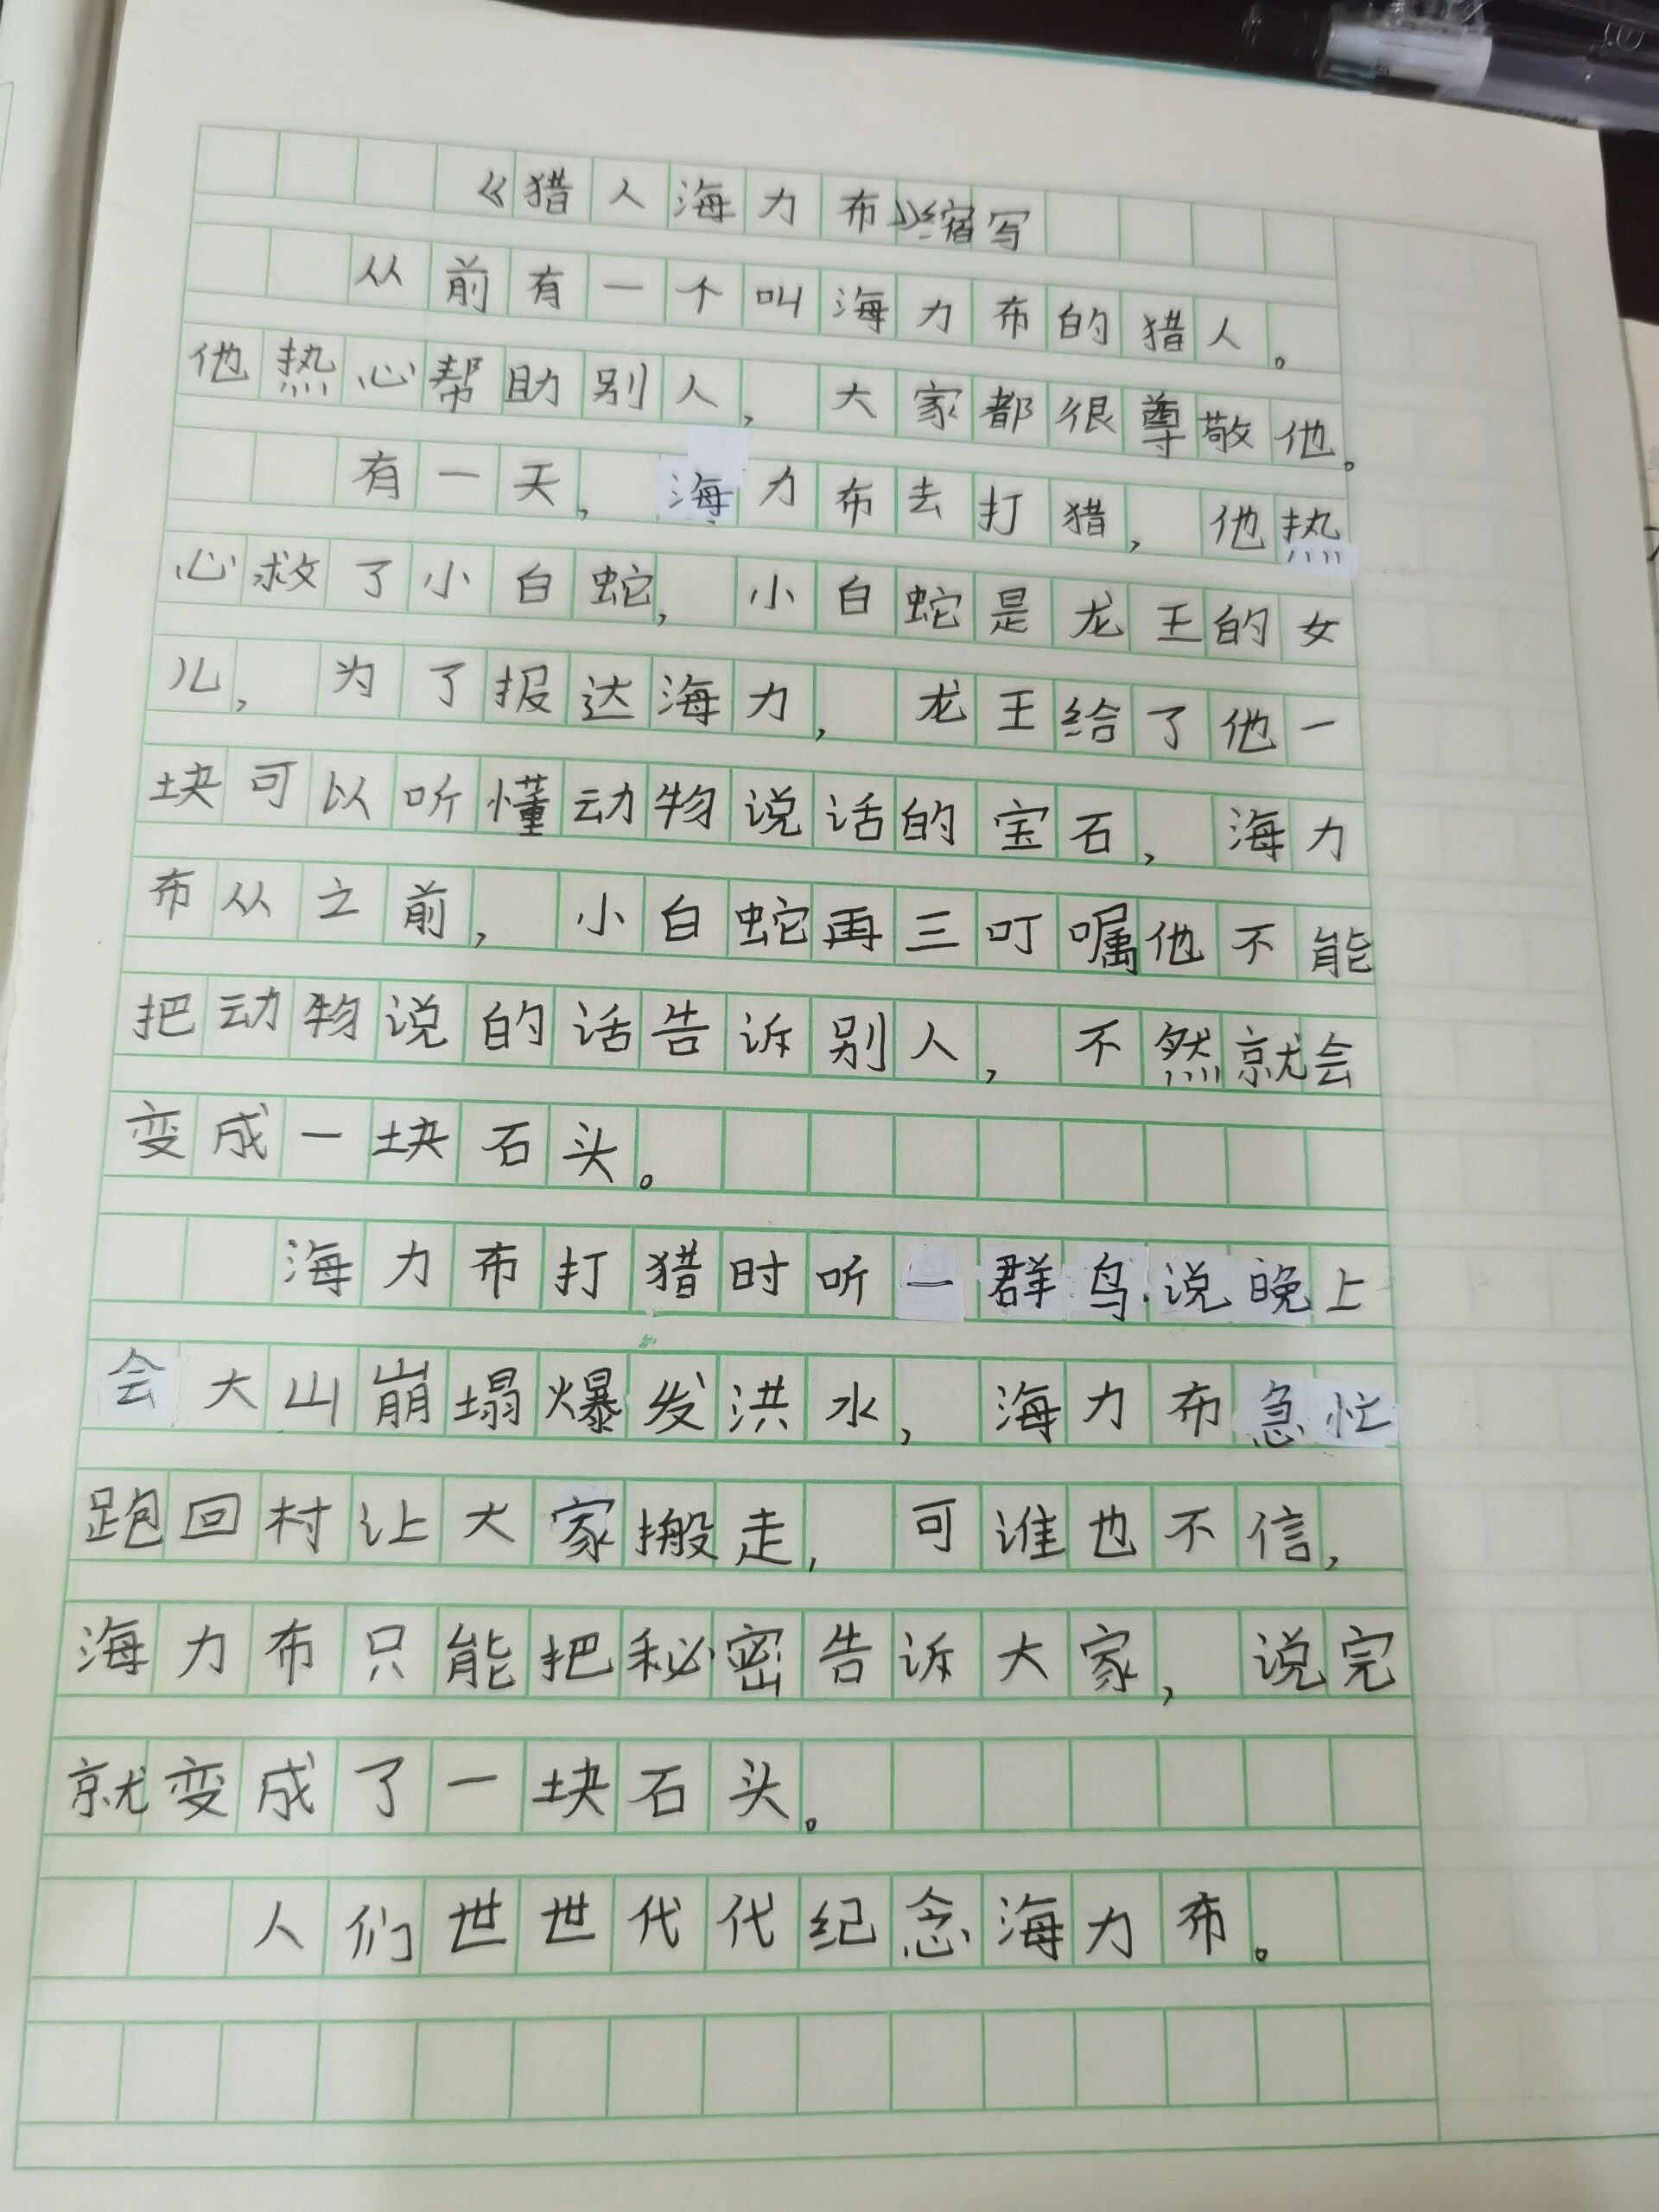 《猎人海力布》缩写
从前有一个叫海力布的猎人。
他热心帮助别人,大家都很尊敬他。
有一天,海力布去打猎,他热
心救了小白蛇,小白蛇是龙王的女
儿,为了报达海力,龙王给了他一
块可以听懂动物说话的宝石,海力
布从之前,小白蛇再三叮嘱他不能
把动物说的话告诉别人,不然就会
变成一块石头。
海力布打猎时听一群鸟说晚上
会大山崩塌爆发洪水,海力布急忙
跑回村让大家搬走,可谁也不信,
海力布只能把秘密告诉大家,说完
就变成了一块石头。
人们世世代代纪念海力布。